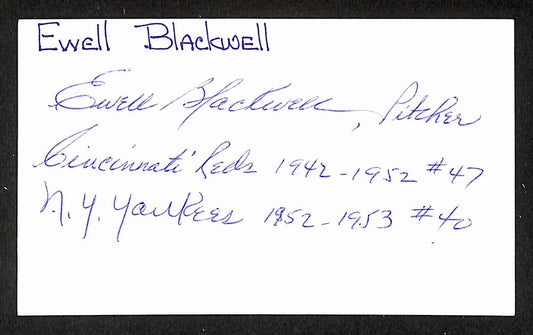 Ewell Blackwell
Ewell Blackwell, Pitcher
Cincinnati Reds 1942-1952 #47
N.Y. Yankees 1952-1953 #40